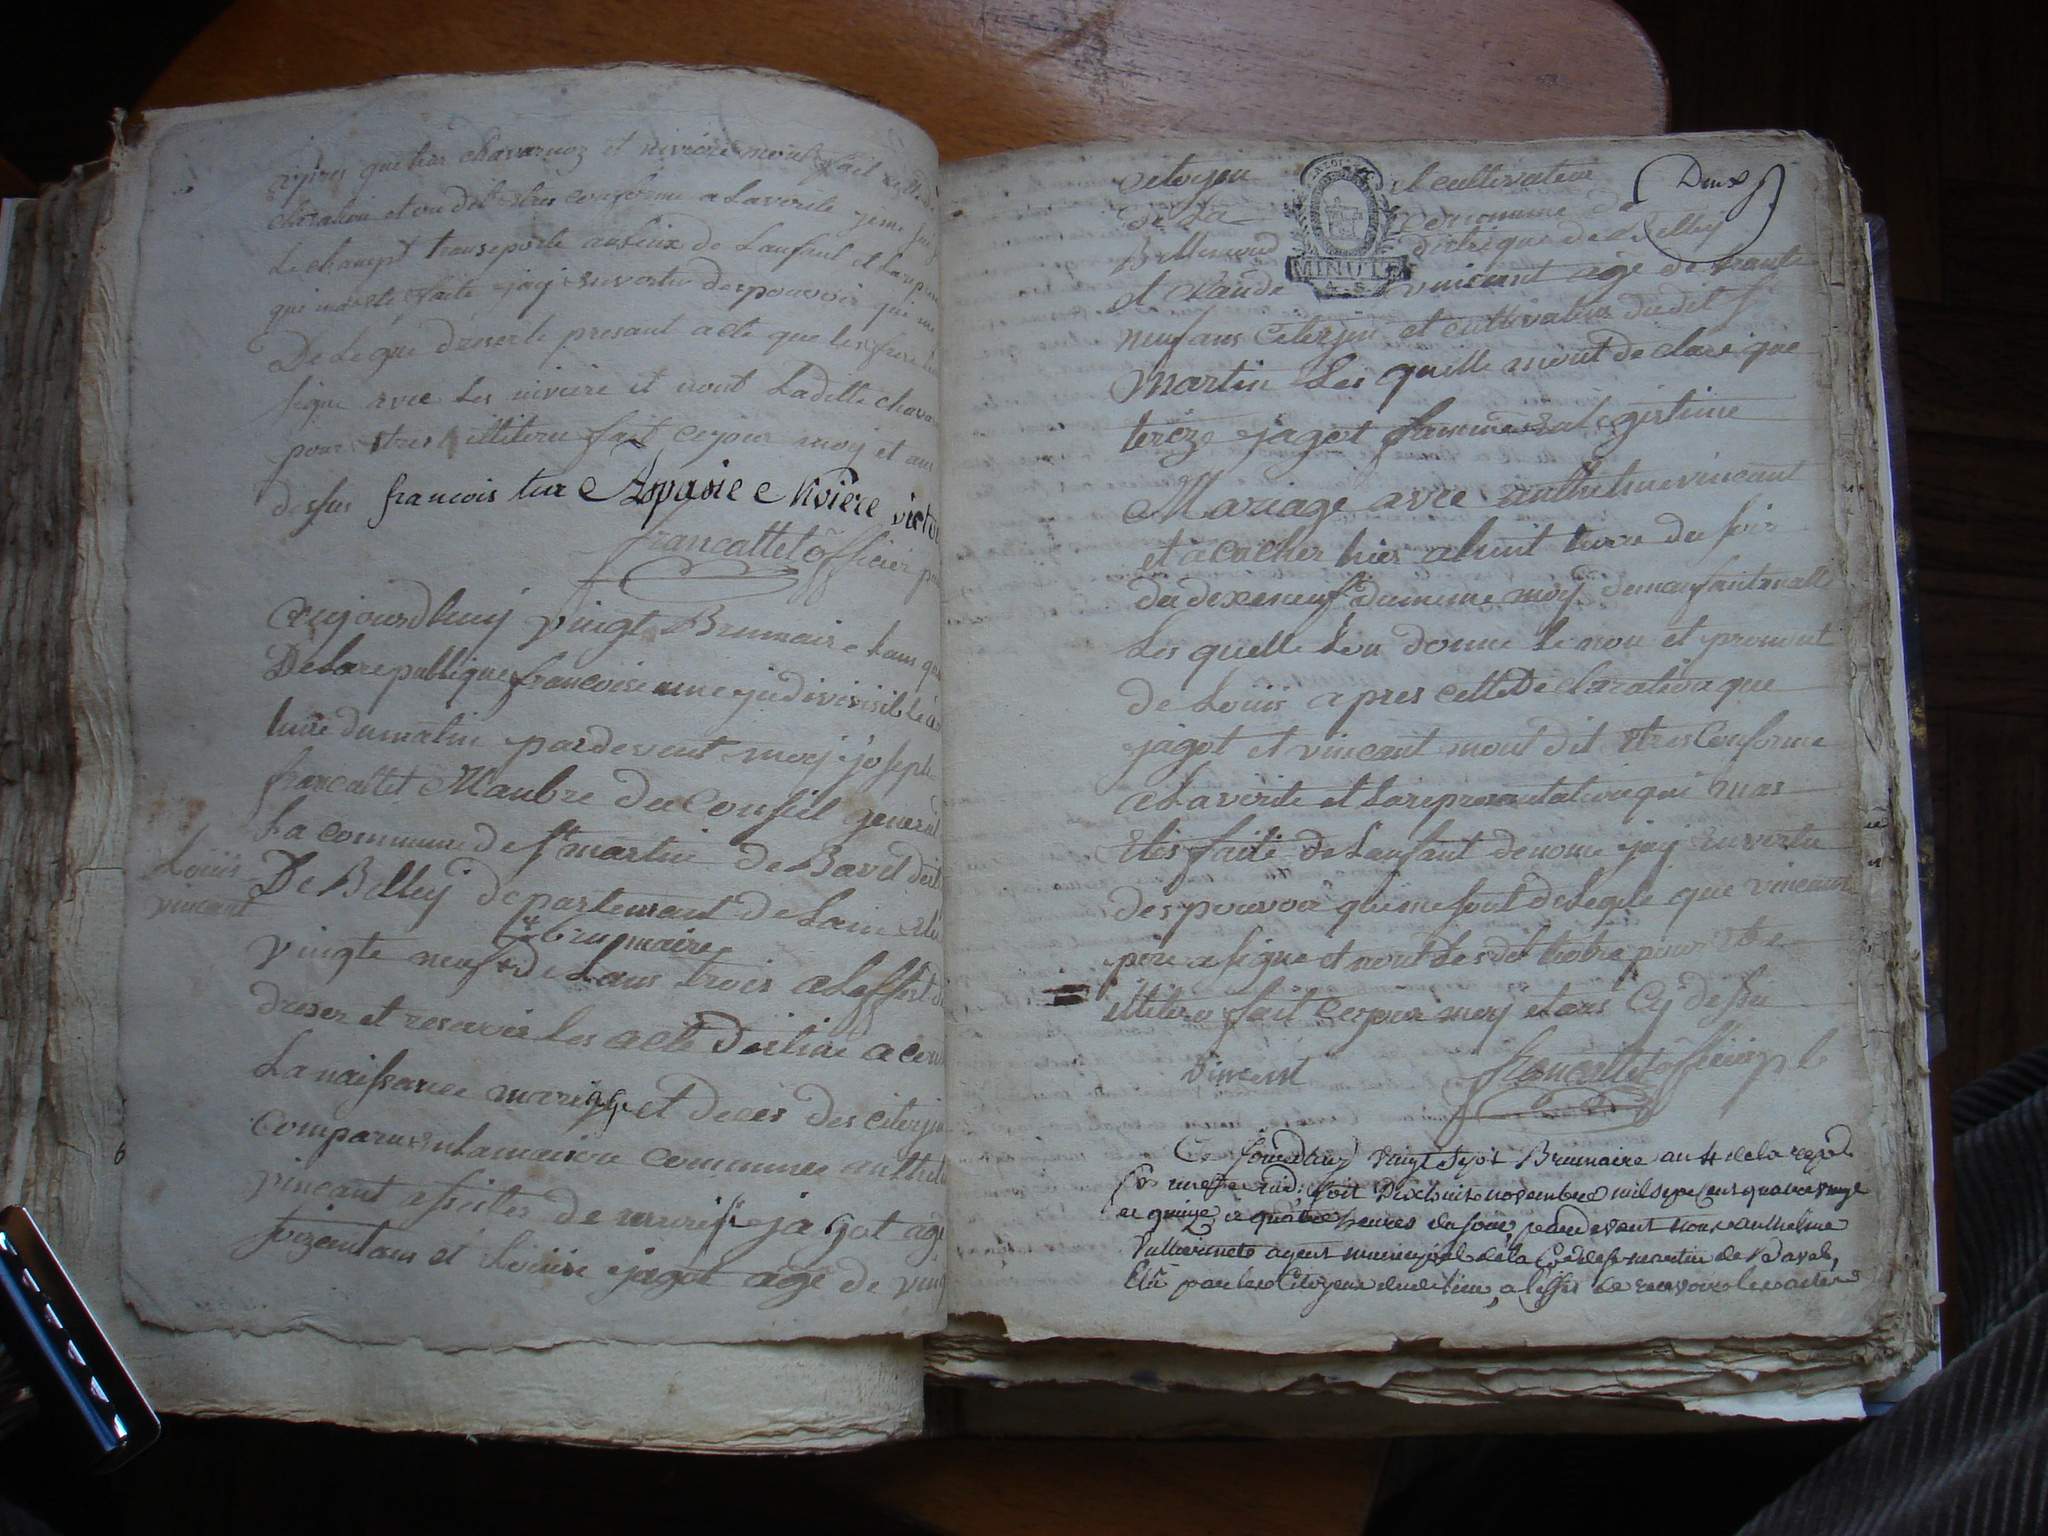 apres que les chavarnoz et riviere mont fait cette de
claration et ou dit etres conforme a la verite je me suis
Le champt transporte au lieux de Lanfant et La repre
qui ma ete faite jay en vertu des pouvoir qui me
De Legue dreser le presant acte que les frere
signe avec Les riviere et nont La ditte chava
pour etres illiteru fait ce jour moy et an
dessus francois tur Aspasie Riviere victoi
francallet officier p
aujourdhuy vingt Brumaire Lans qua
De La republique francoise une jndivisible a
hure du matin par devent moy joseph
francallet Manbre du Conseil general
La commune de St martin de Bavel dis
Louis
vincent
De Belley departement de Lain elu
4 brumaire
vingte neuf de Lans trois a Leffert de
dreser et resevoir les acte Destine a con
La naissance mariage et deces des citoyen
comparu en La maison commune anthel
vincent assistes de mauris jagot age
soizantans et Louise jagot age de ving
citoyen et cultivateur
Deux
de La commune de
Billieu district de Belley
et Claude vincent age de trante
neuf ans Citoyen et cultivateur du dit St
Martin Les quelle mont de clare que
tereze jagot famme en legistime
Mariage avec anthelme vincent
et acoucher hier a huit hure du soir
du dexeneuf du meme moy dun enfant malle
Les quelle Lon donne Le non et prenont
de Louis apres cette De claration que
jagot et vincent mont dit etres Conforme
a La verite et La representation qui mas
etes faite de Lanfant denome jay en vertu
des pouvoir qui me sont delegue que vincent
pere a signe et nont Les dit autre pour etre
illitere fait ce jour moy et ans Cy dessu
MINUTE
vincent
francallet officier pb
Ce jourdhuy vingt Sept Brumaire an 4 de la repub
fse une et indi. soit Dixhuit novembre mil sept cent quatre vingt
et quinze a quatre heures du soir, pardevant nous anthelme
Vuilleronet agent municipal de la Cne de St martin de Bavel,
Elu par les Citoyens du dit lieu, a leffet de recevoir les actes